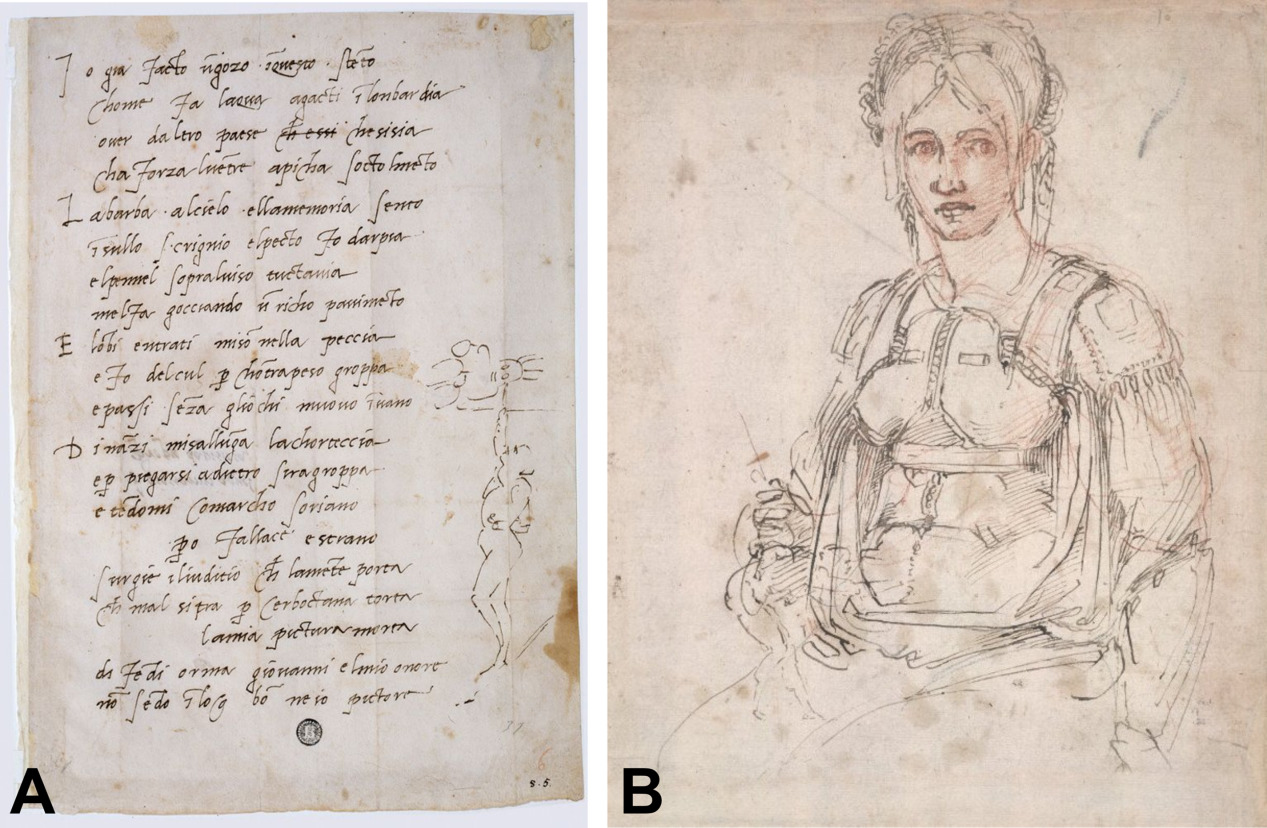 I o gia facto ũgozo ĩquesto stẽto
chome fa laqua agacti ĩlonbardia
over daltro paese ch essi chesisia
cha forza luẽtre apicha socto lmẽto
L abarba alcielo ellamemoria sento
ĩsullo scrignio elpecto fo darpia
elpennel sopralviso tuctavia
melfa gocciando ũ richo pavimẽto
E lõbi entrati miso nella peccia
e fo delcul p chõtrapeso groppa
e passi sẽza gliochi muovo ĩvano
D inãzi misallũga lachorteccia
ep piegarsi adietro siragroppa
e tẽdomi Comarcho soriano
po fallace estrano
surgie iliuditio ch lamẽte porta
ch mal sitra p cerboctana torta
lamia pictura morta
di fedi orma giovanni elmio onore
nõ sẽdo ĩlog bõ ne io pictore
77
6
8.5.
A
B